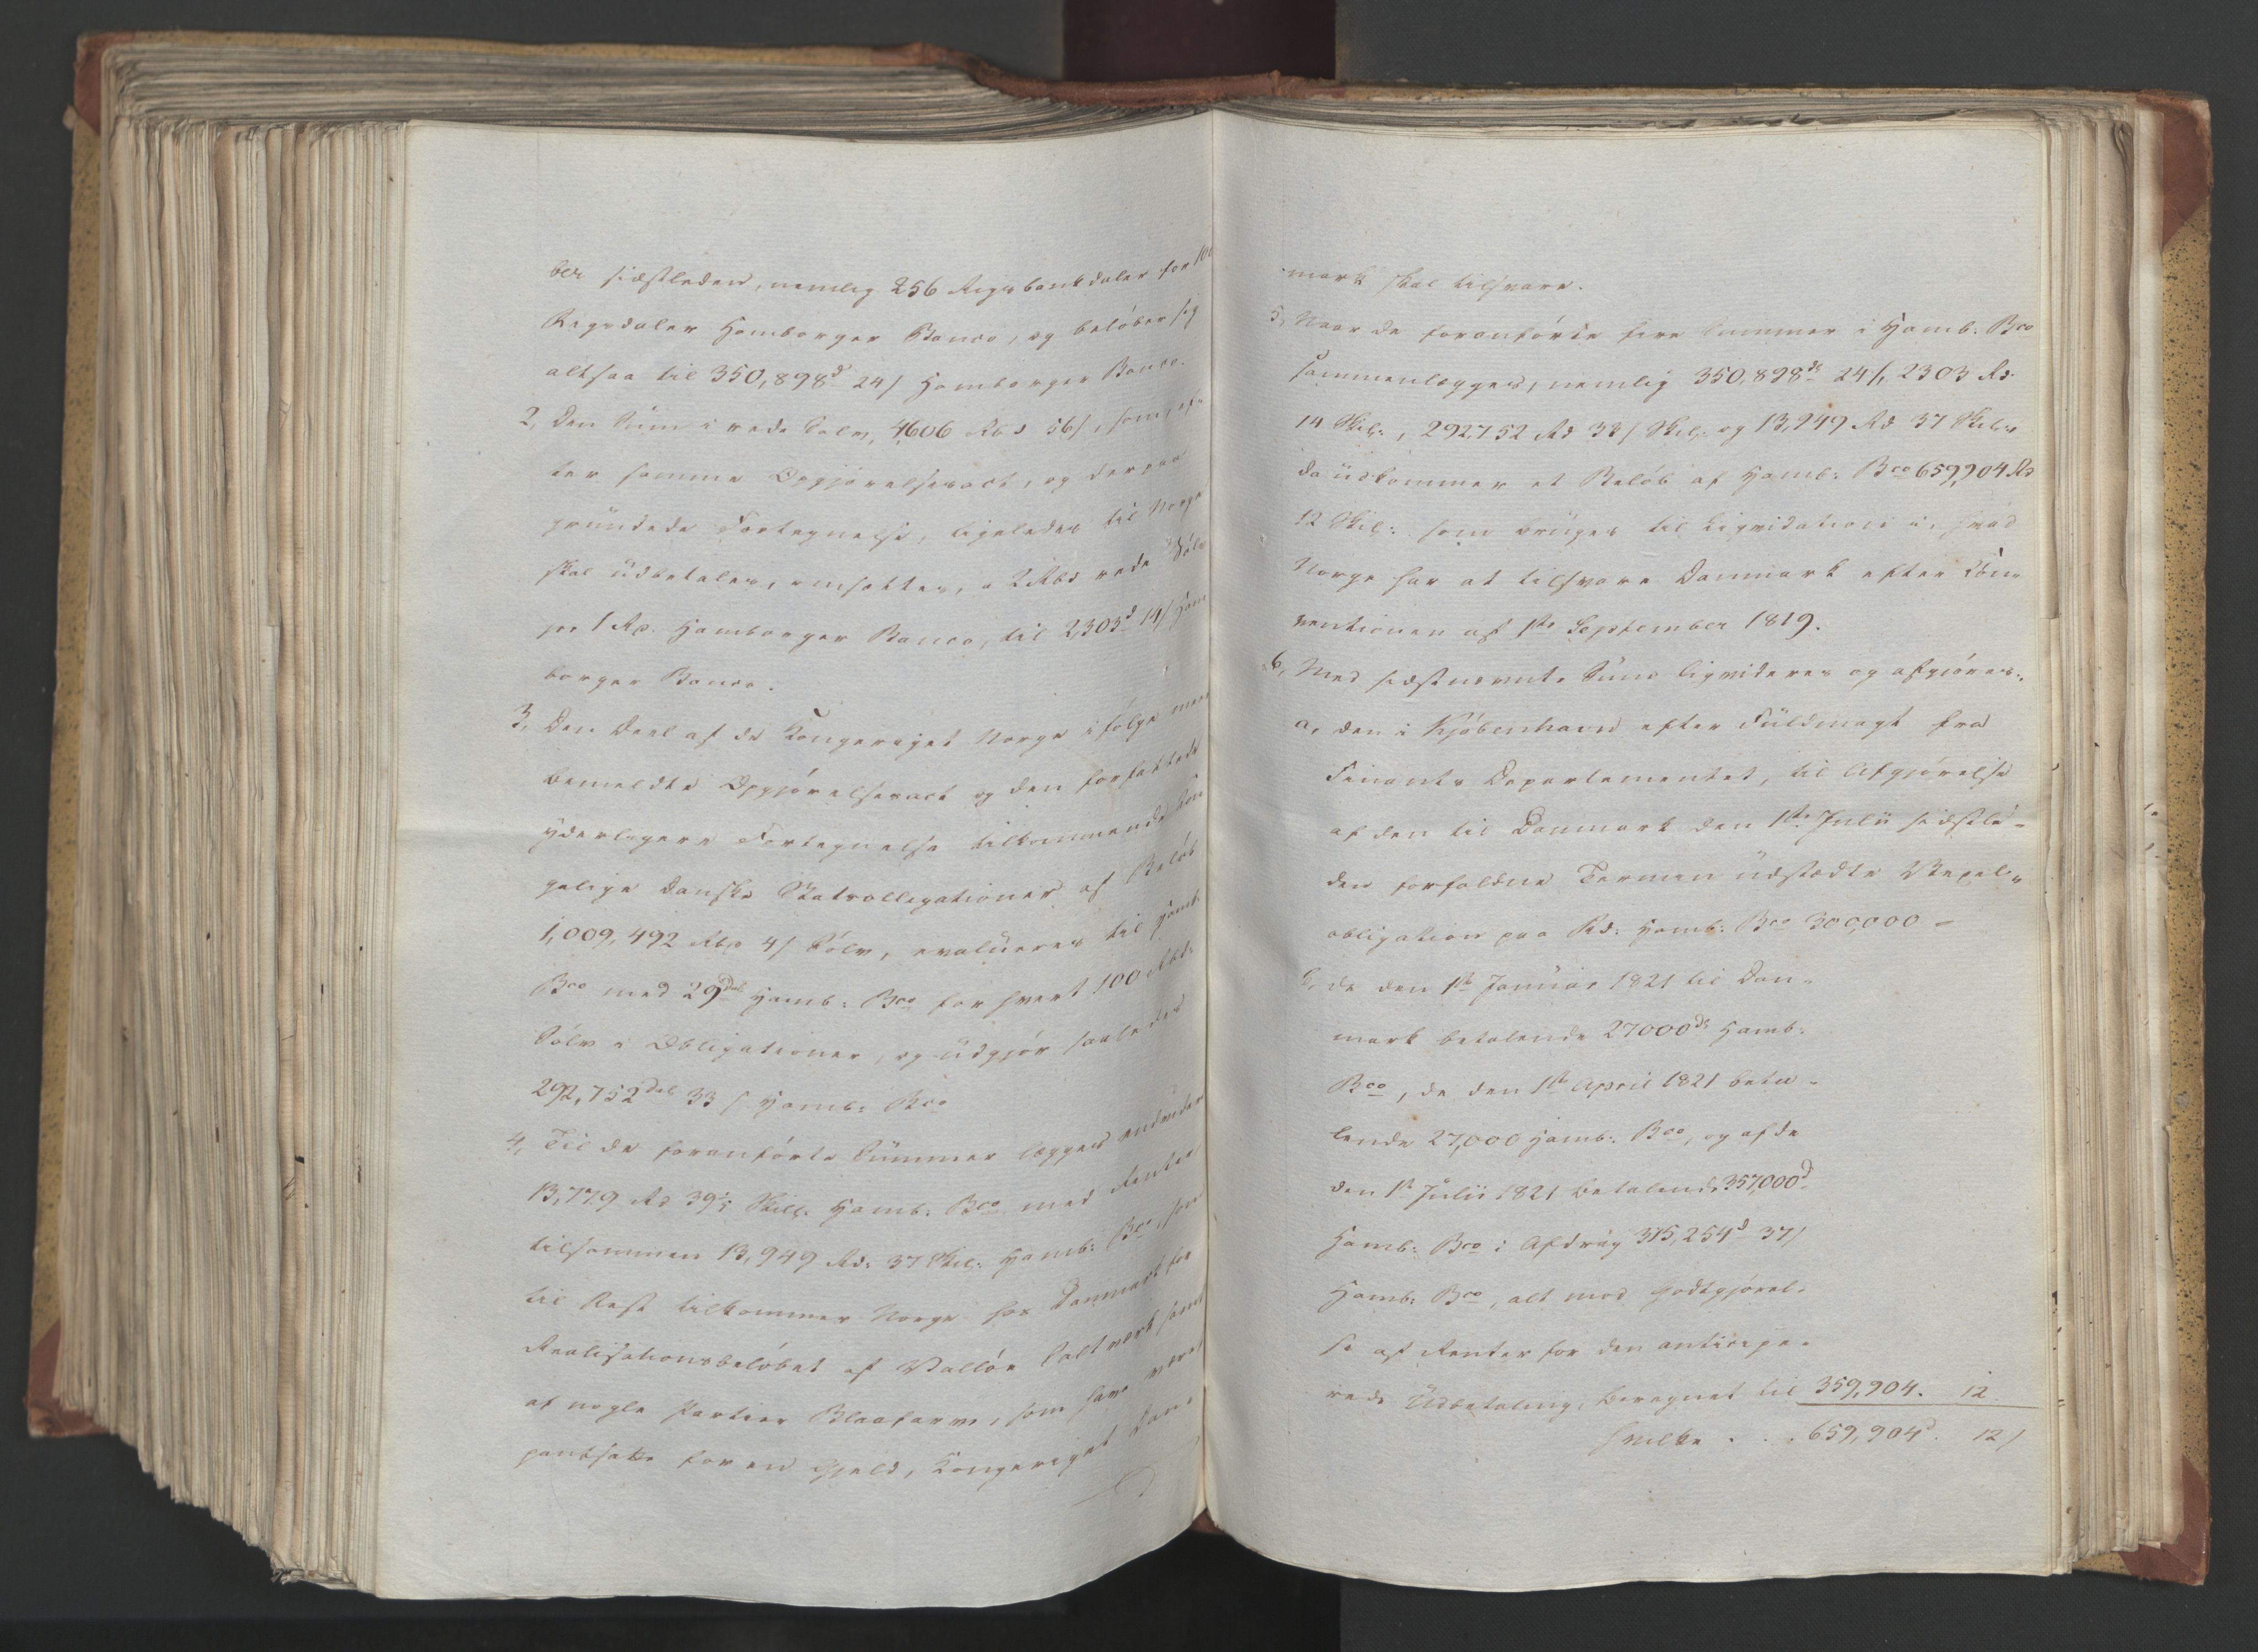 ber sidstleden, nemlig 256 Rigsbankdaler for 100
Rigsdaler Hamborger Banco, og beløber sig
altsaa til 350,898d 24/ Hamborger Banco.
2, Den Sum i rede Sølv, 4606 Rbd 56/, som ef-
ter samme Opgjørelsesact, og derpaa
grundede Fortegnelse, ligeledes til Norge
skal üdbetales, ansættes, a 2 Rbd rede Sølv
pr 1 Rd. Hamborger Banco, til 2,303d 14/ Ham
borger Banco.
3, Den Deel af de Kongeriget Norge i følge meer
bemeldte Opgjørelsesact og den forfattede
yderligere Fortegnelse tilkommende Kon
gelige danske Statsobligationer af Beløb
1,009,492 Rbd 4/ Sølv, evalüeres til Hamb.
Bco med 29Dal Hamb: Bco for hvert 100 Rbd:
Sølv i Obligationer, og üdgjør saaledes
292,752Dal 33/ Hamb: Bco
4, Til de foranførte Summer lægges endvidere
13,779 Rd 39 Skill. Hamb: Bco med Renter
tilsammen 13,949 Rd: 37 Skil: Hamb: Bco, som
til Rest tilkommer Norge hos Danmark for
Realisationsbeløbet af Valløe Saltværk samt
af nogle Partier Blaafarve, som have været
pantsatte for en Gjeld, Kongeriget Dan-
mark skal tilsvare.
5, Naar de foranførte fire Summer i Hamb: Bco
sammenlægges, nemlig 350,898d 24/, 2303 Rd
14 Skil:, 292,752 Rd 33/ Skil: og 13,949 Rd 37 Skil:,
da üdkommer et Beløb af Hamb: Bco 659,904 Rd
12 Skil: som brüges til Liqvidation i, hvad
Norge har at tilsvare Danmark efter Con-
ventionen af 1ste September 1819.
6, Med sidstnævnte Sum liqvideres og afgjøres:
a, den i Kjøbenhavn efter Füldmagt fra
Finants Departementet, til Afgjørelse
af den til Danmark den 1ste Julii sidstle-
den forfaldne Termin üdstædte Vexel-
obligation paa Rd: Hamb: Bco 300,000 -
b, de den 1ste Januar 1821 til Dan-
mark betalende 27000d Hamb:
Bco, de den 1ste April 1821 beta-
lende 27,000 Hamb: Bco, og af de
den 1ste Julii 1821 betalende 357,000d
Hamb: Bco i Afdrag 315,254d 37/
Hamb: Bco, alt mod Godtgjørel-
se af Renter for den anticipe-
rede Üdbetaling, beregnet til 359,904. 12
hvilke . . . 659,904d. 12/